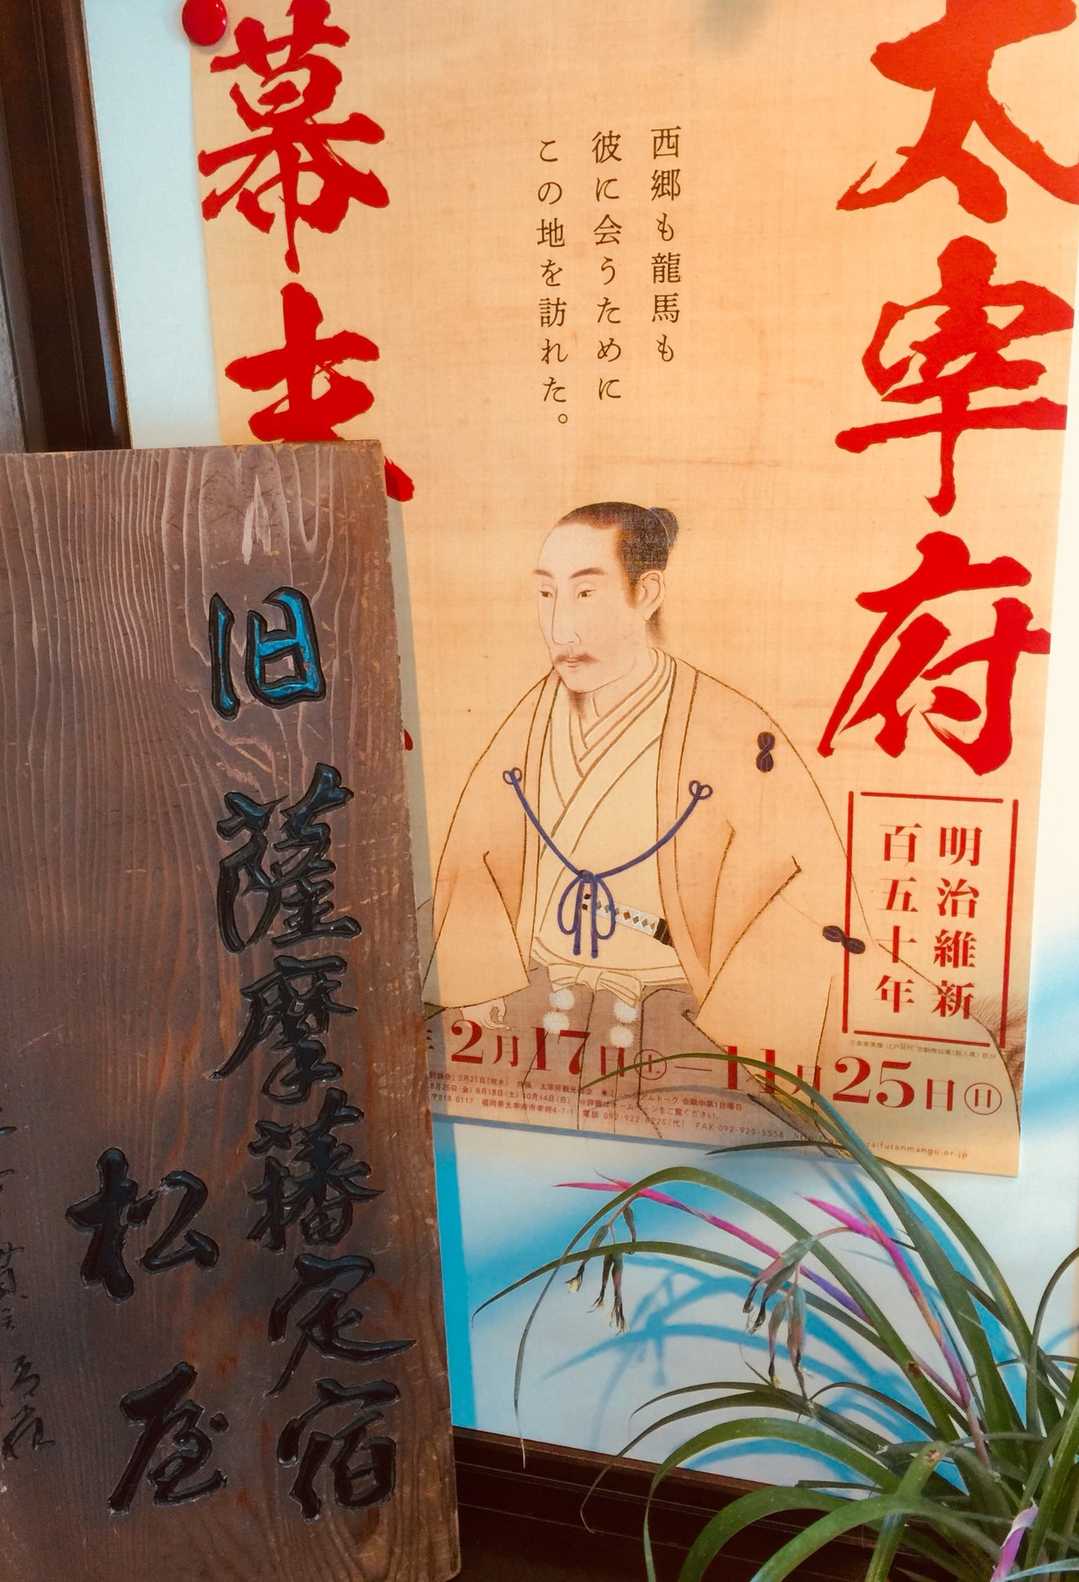 太宰府
幕末
西郷も龍馬も
彼に会うために
この地を訪れた。
明治維新
百五十年
2月17日㊏―11月25日㊐
旧薩摩藩定宿
松屋